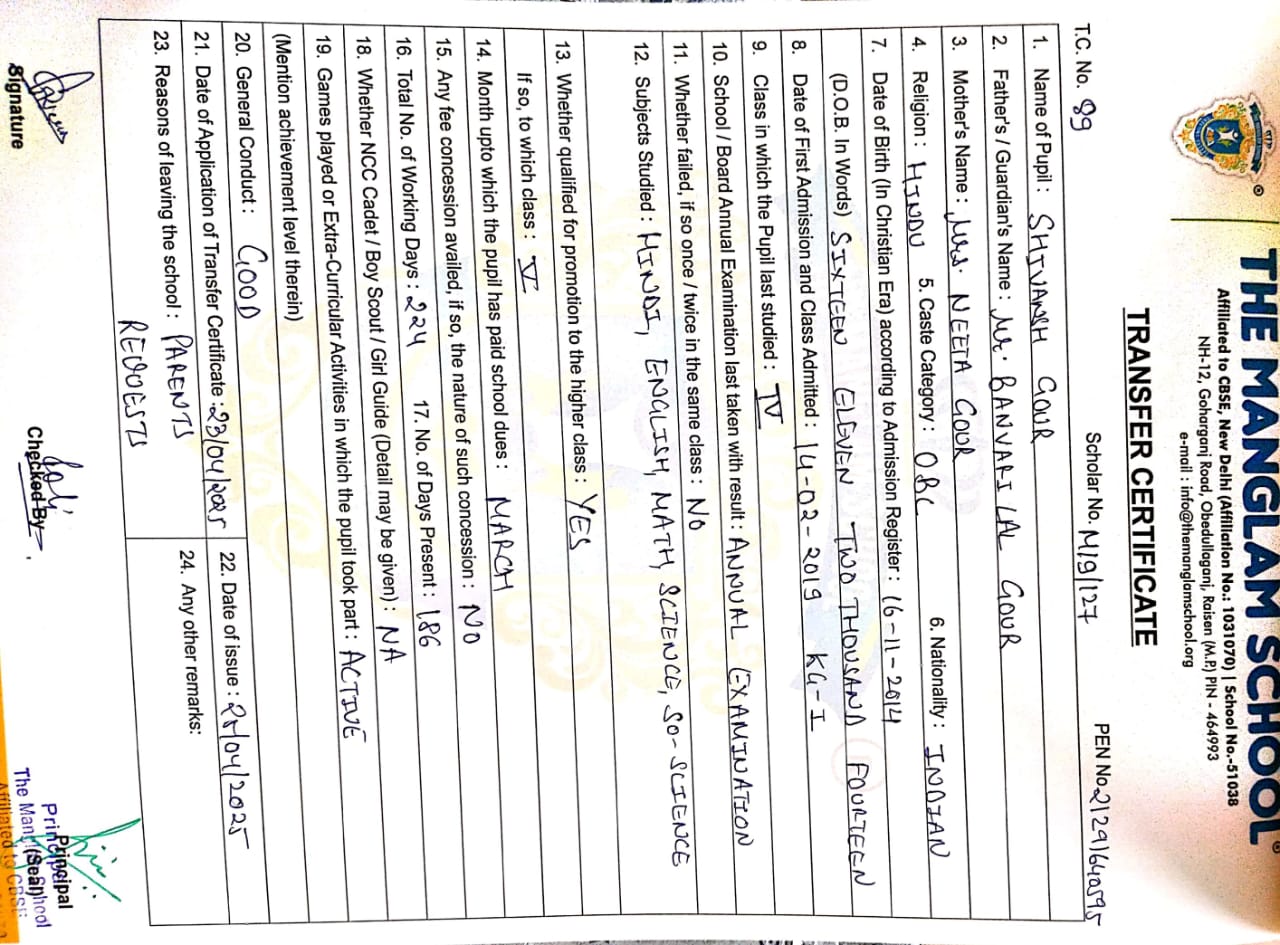 THE MANGLAM SCHOOL
Affiliated to CBSE, New Delhi (Affiliation No.: 1031070) | School No.-51038
NH-12, Goharganj Road, Obedullaganj, Raisen (M.P.) PIN - 464993
e-mail : info@themanglamschool.org
TRANSFER CERTIFICATE
T.C. No. 89 Scholar No. M/19/127 PEN No 21291640595
1. Name of Pupil : SHIVANSH GOUR
2. Father's / Guardian's Name : Mr. BANVARI LAL GOUR
3. Mother's Name : Mrs. NEETA GOUR
4. Religion : HINDU 5. Caste Category : OBC 6. Nationality : INDIAN
7. Date of Birth (In Christian Era) according to Admission Register : 16-11-2014
(D.O.B. In Words) SIXTEEN ELEVEN TWO THOUSAND FOURTEEN
8. Date of First Admission and Class Admitted : 14-02-2019 KG-I
9. Class in which the Pupil last studied : IV
10. School / Board Annual Examination last taken with result : ANNUAL EXAMINATION
11. Whether failed, if so once / twice in the same class : NO
12. Subjects Studied : HINDI, ENGLISH, MATH, SCIENCE, SO-SCIENCE
13. Whether qualified for promotion to the higher class : YES
If so, to which class : V
14. Month upto which the pupil has paid school dues : MARCH
15. Any fee concession availed, if so, the nature of such concession : NO
16. Total No. of Working Days : 224 17. No. of Days Present : 186
18. Whether NCC Cadet / Boy Scout / Girl Guide (Detail may be given) : NA
19. Games played or Extra-Curricular Activities in which the pupil took part : ACTIVE
(Mention achievement level therein)
20. General Conduct : GOOD
21. Date of Application of Transfer Certificate : 23/04/2025 22. Date of issue : 25/04/2025
23. Reasons of leaving the school : PARENTS 24. Any other remarks:
REQUESTS
Signature Checked By Principal
(Seal)
Principal
The Manglam School
Affiliated to CBSE